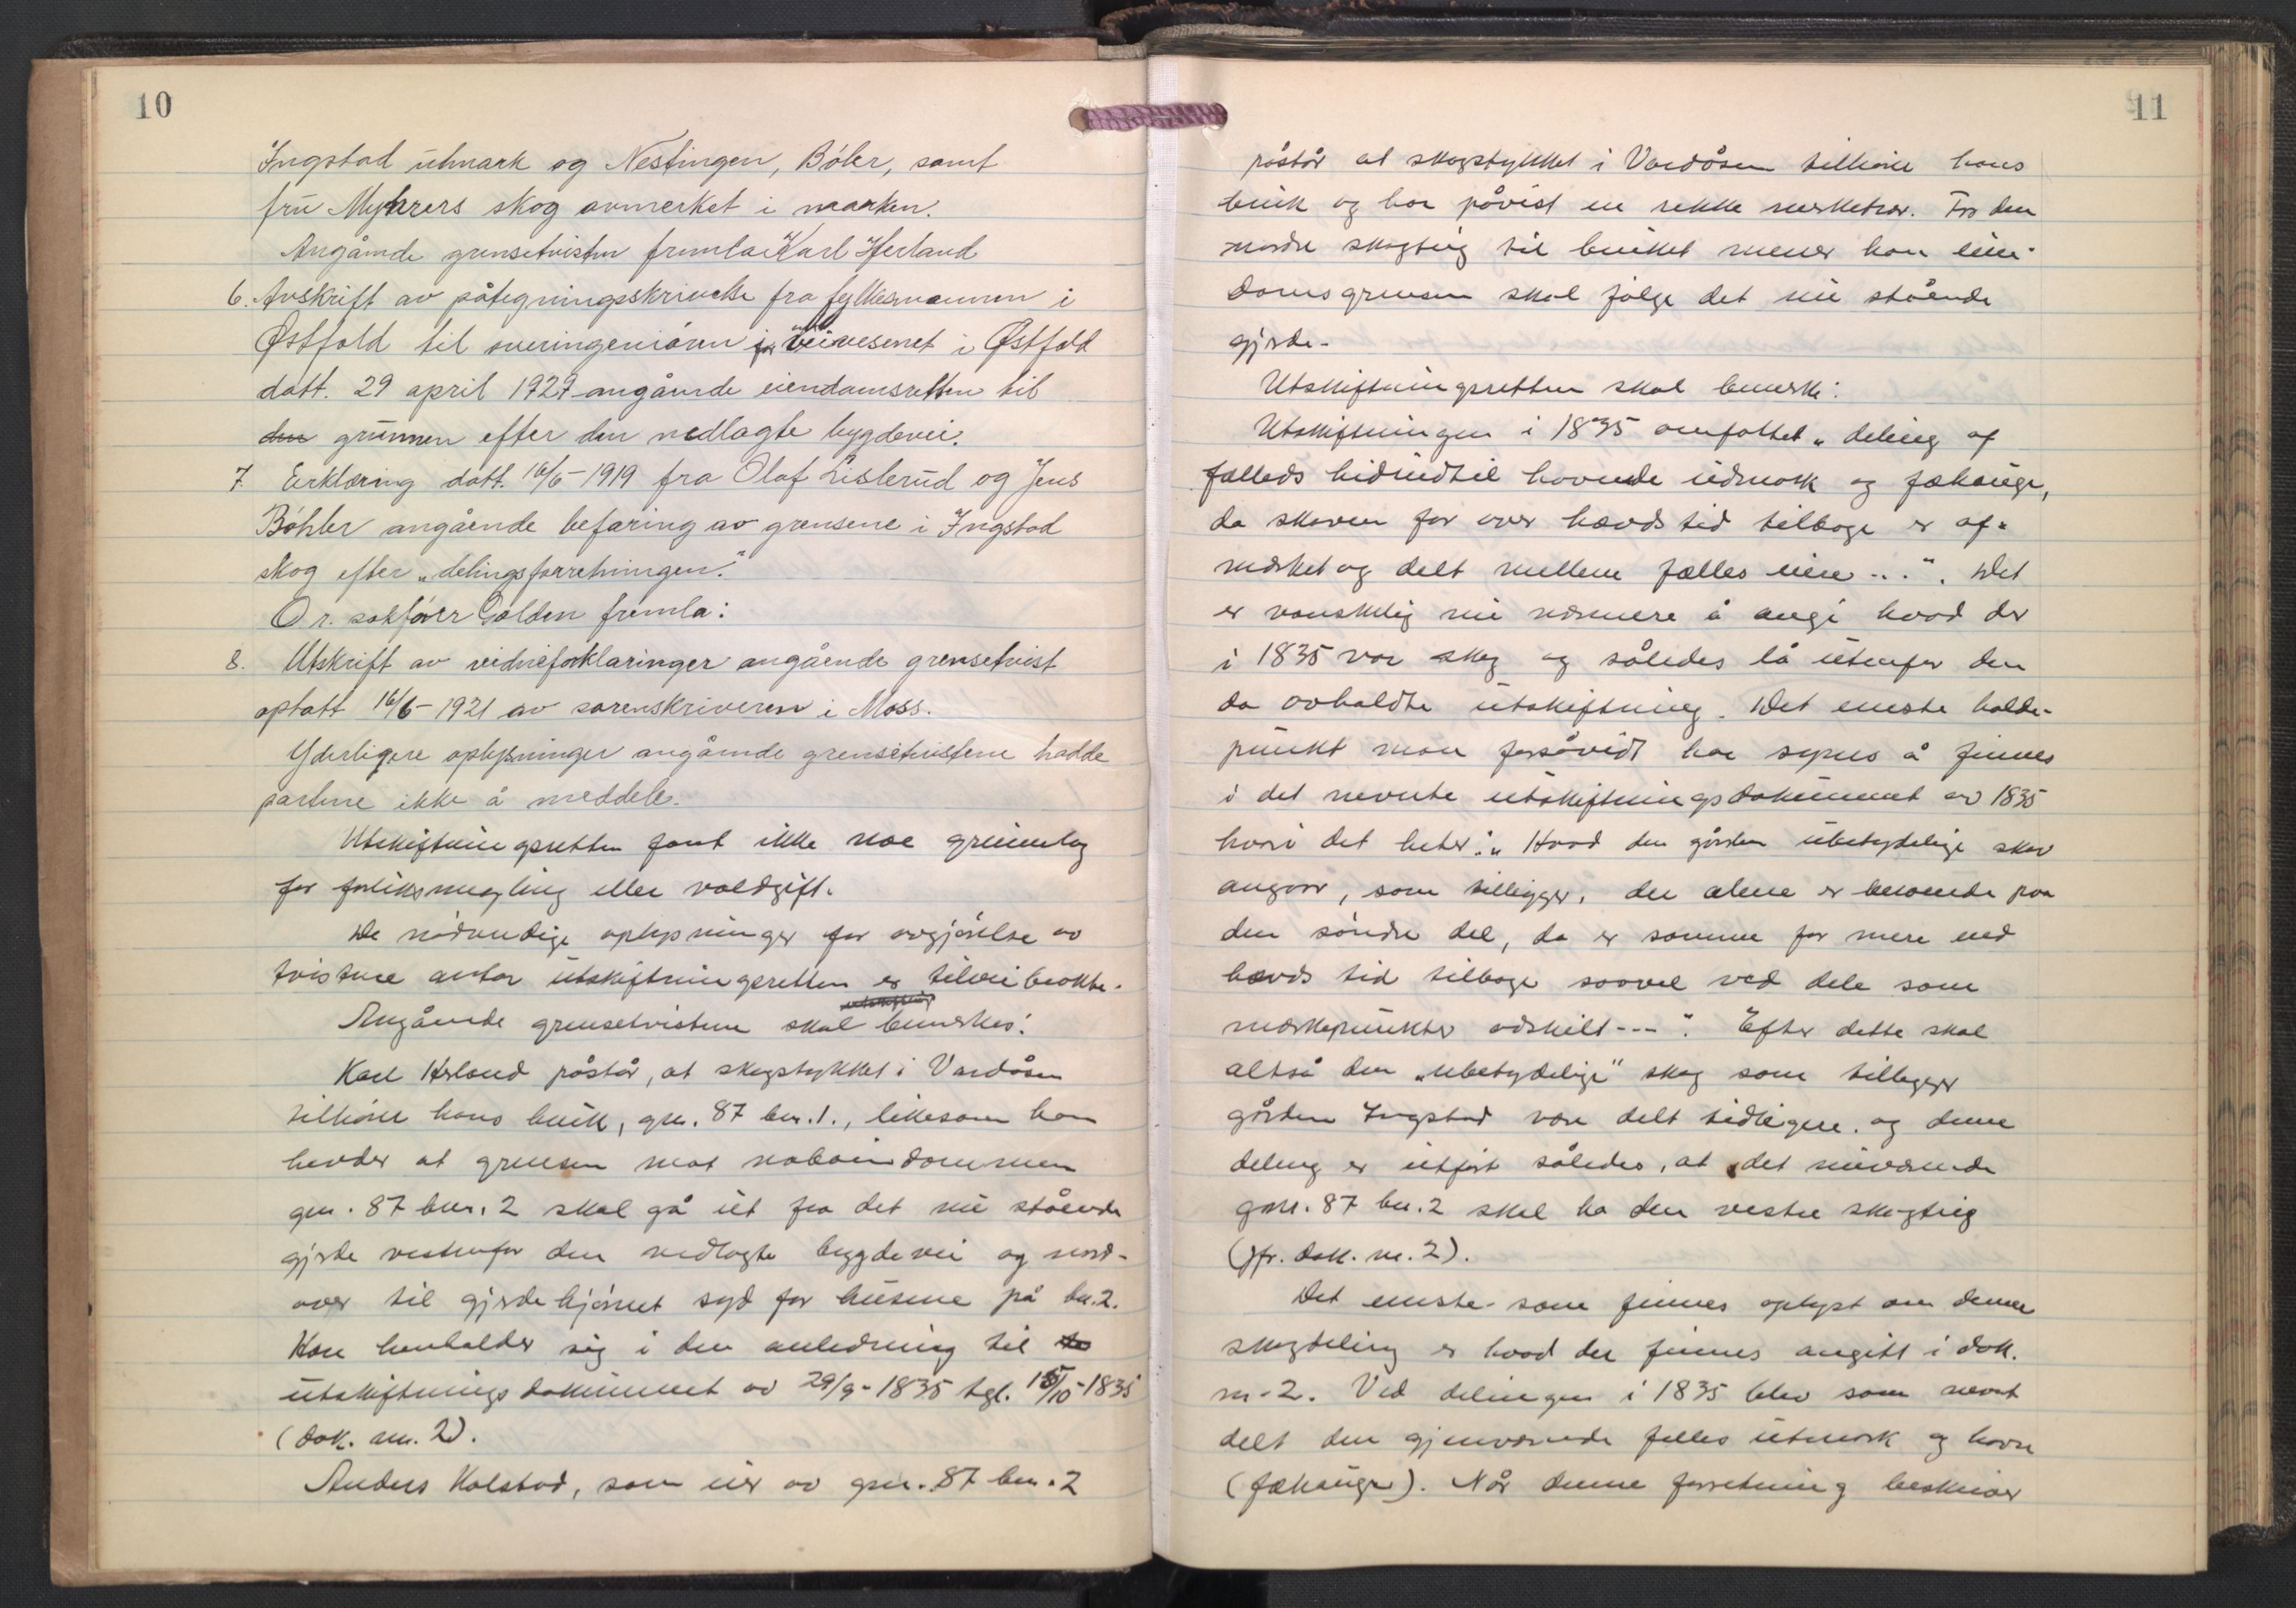 10
Ingstad utmark og Nestingen, Bøler, samt
fru Myhrers skog avmerket i marken.
Angående grensetvisten fremla Karl Herland
6. Avskrift av påtegningsskrivelse fra fylkesmannen i
Østfold til overingeniøren for veivesenet i Østfold
datt. 29 april 1927 angående eiendomsretten til
den grunnen efter den nedlagte bygdevei.
7. Erklæring datt. 16/6-1919 fra Olaf Lislerud og Jens
Bøhler angående befaring av grensene i Ingstad
skog efter „delingsforretningen.“
O.r. sakfører Galden fremla:
8. Utskrift av vidneforklaringer angående grensetvist
optatt 16/6-1921 av sorenskriveren i Moss.
Yderligere oplysninger angående grensetvistene hadde
partene ikke å meddele.
Utskiftningsretten fant ikke noe grunnlag
for forliksmegling eller voldgift.
De nødvendige oplysninger for avgjørelse av
tvistene antar utskiftningsretten er tilveibrakte.
Angående grensetvistene skal bemerkes:
Karl Herland påstår, at skogstykket i Vardåsen
tilhører hans bruk, gnr. 87 bnr. 1., likesom han
hevder at grensen mot naboeiendommen
gnr. 87 bnr. 2 skal gå ut fra det nu stående
gjerde vestenfor den nedlagte bygdevei og nord-
over til gjerdehjørnet syd for husene på bnr. 2.
Han henholder sig i den anledning til
utskiftningsdokumentet av 29/9-1835 tgl. 15/10-1835
(dok. nr. 2).
Anders Kolstad, som eier av gnr. 87 bnr. 2
11
påstår at skogstykket i Vardåsen tilhører hans
bruk og har påvist en rekke merketrær. Fra den
nordre skogteig til bruket mener han eien-
domsgrensen skal følge det nu stående
gjerde.
Utskiftningsretten skal bemerke:
Utskiftningen i 1835 omfattet „deling af
fælleds hidindtil havende udmark og fæhauge,
da skoven for over hævds tid tilbage er af-
mærket og delt mellem fælles eiere ...“. Det
er vanskelig nu nærmere å angi hvad der
i 1835 var skog og således lå utenfor den
da avholdte utskiftning. Det eneste holde-
punkt man forsåvidt har synes å finnes
i det nevnte utskiftningsdokument av 1835
hvori det heter: „Hvad den gården ubetydelige skov
angaar, som tilligger, der alene er beroende paa
den søndre del, da er samme for mere end
hævds tid tilbage saavel ved dele som
mærkepunkter adskilt ---“. Efter dette skal
altså den „ubetydelige“ skog som tilligger
gården Ingstad være delt tidligere, og denne
deling er utført således, at det nuværende
gnr. 87 bnr. 2 skal ha den vestre skogteig
(jfr. dok. nr. 2).
Det eneste som finnes oplyst om denne
skogdeling er hvad der finnes angitt i dok.
nr. 2. Ved delingen i 1835 blev som nevnt
delt den gjenværende felles utmark og havn
(fæhauge). Når denne forretning beskriver